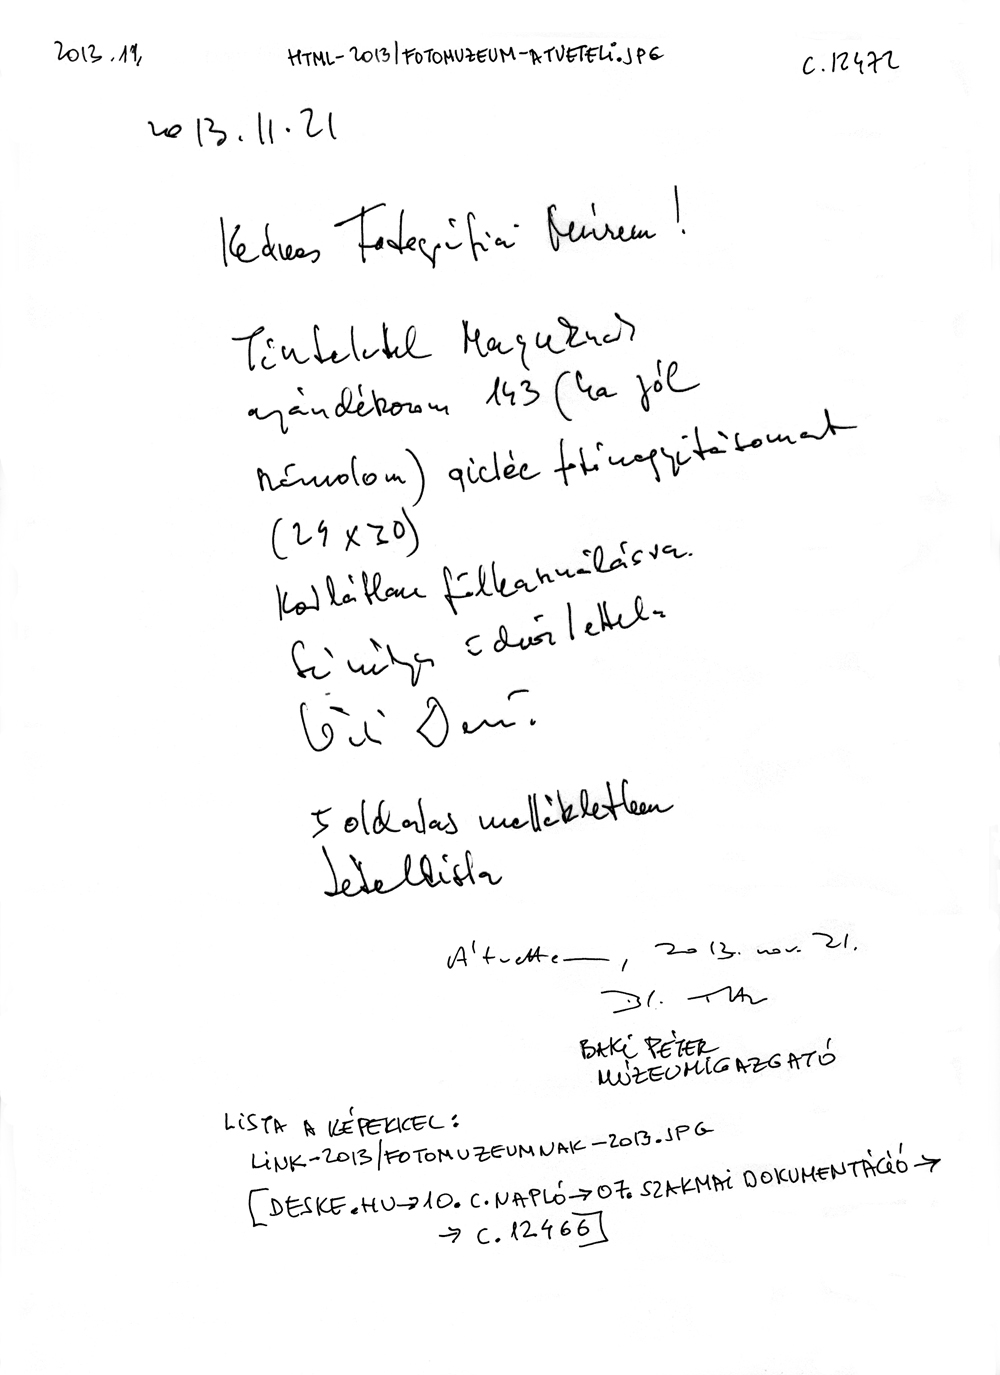 2013.11.
HTML-2013/FOTOMUZEUM-ATVETELI.JPG
C.12472
2013.11.21
Kedves Fotográfiai Múzeum!
Tisztelettel Maguknak
ajándékozom 143 (ha jól
számolom) giclée fotónagyításomat
(24 x 30)
Korlátlan fölhasználásra.
Szívélyes üdvözlettel:
Jenő.
5 oldalas mellékletben
tétellista
Átvettem, 2013. nov. 21.
BAKI PÉTER
MÚZEUMIGAZGATÓ
LISTA A KÉPEKKEL:
LINK-2013/FOTOMUZEUMNAK-2013.JPG
[DESKE.HU→10. C.NAPLÓ→07. SZAKMAI DOKUMENTÁCIÓ→
→ C.12466]